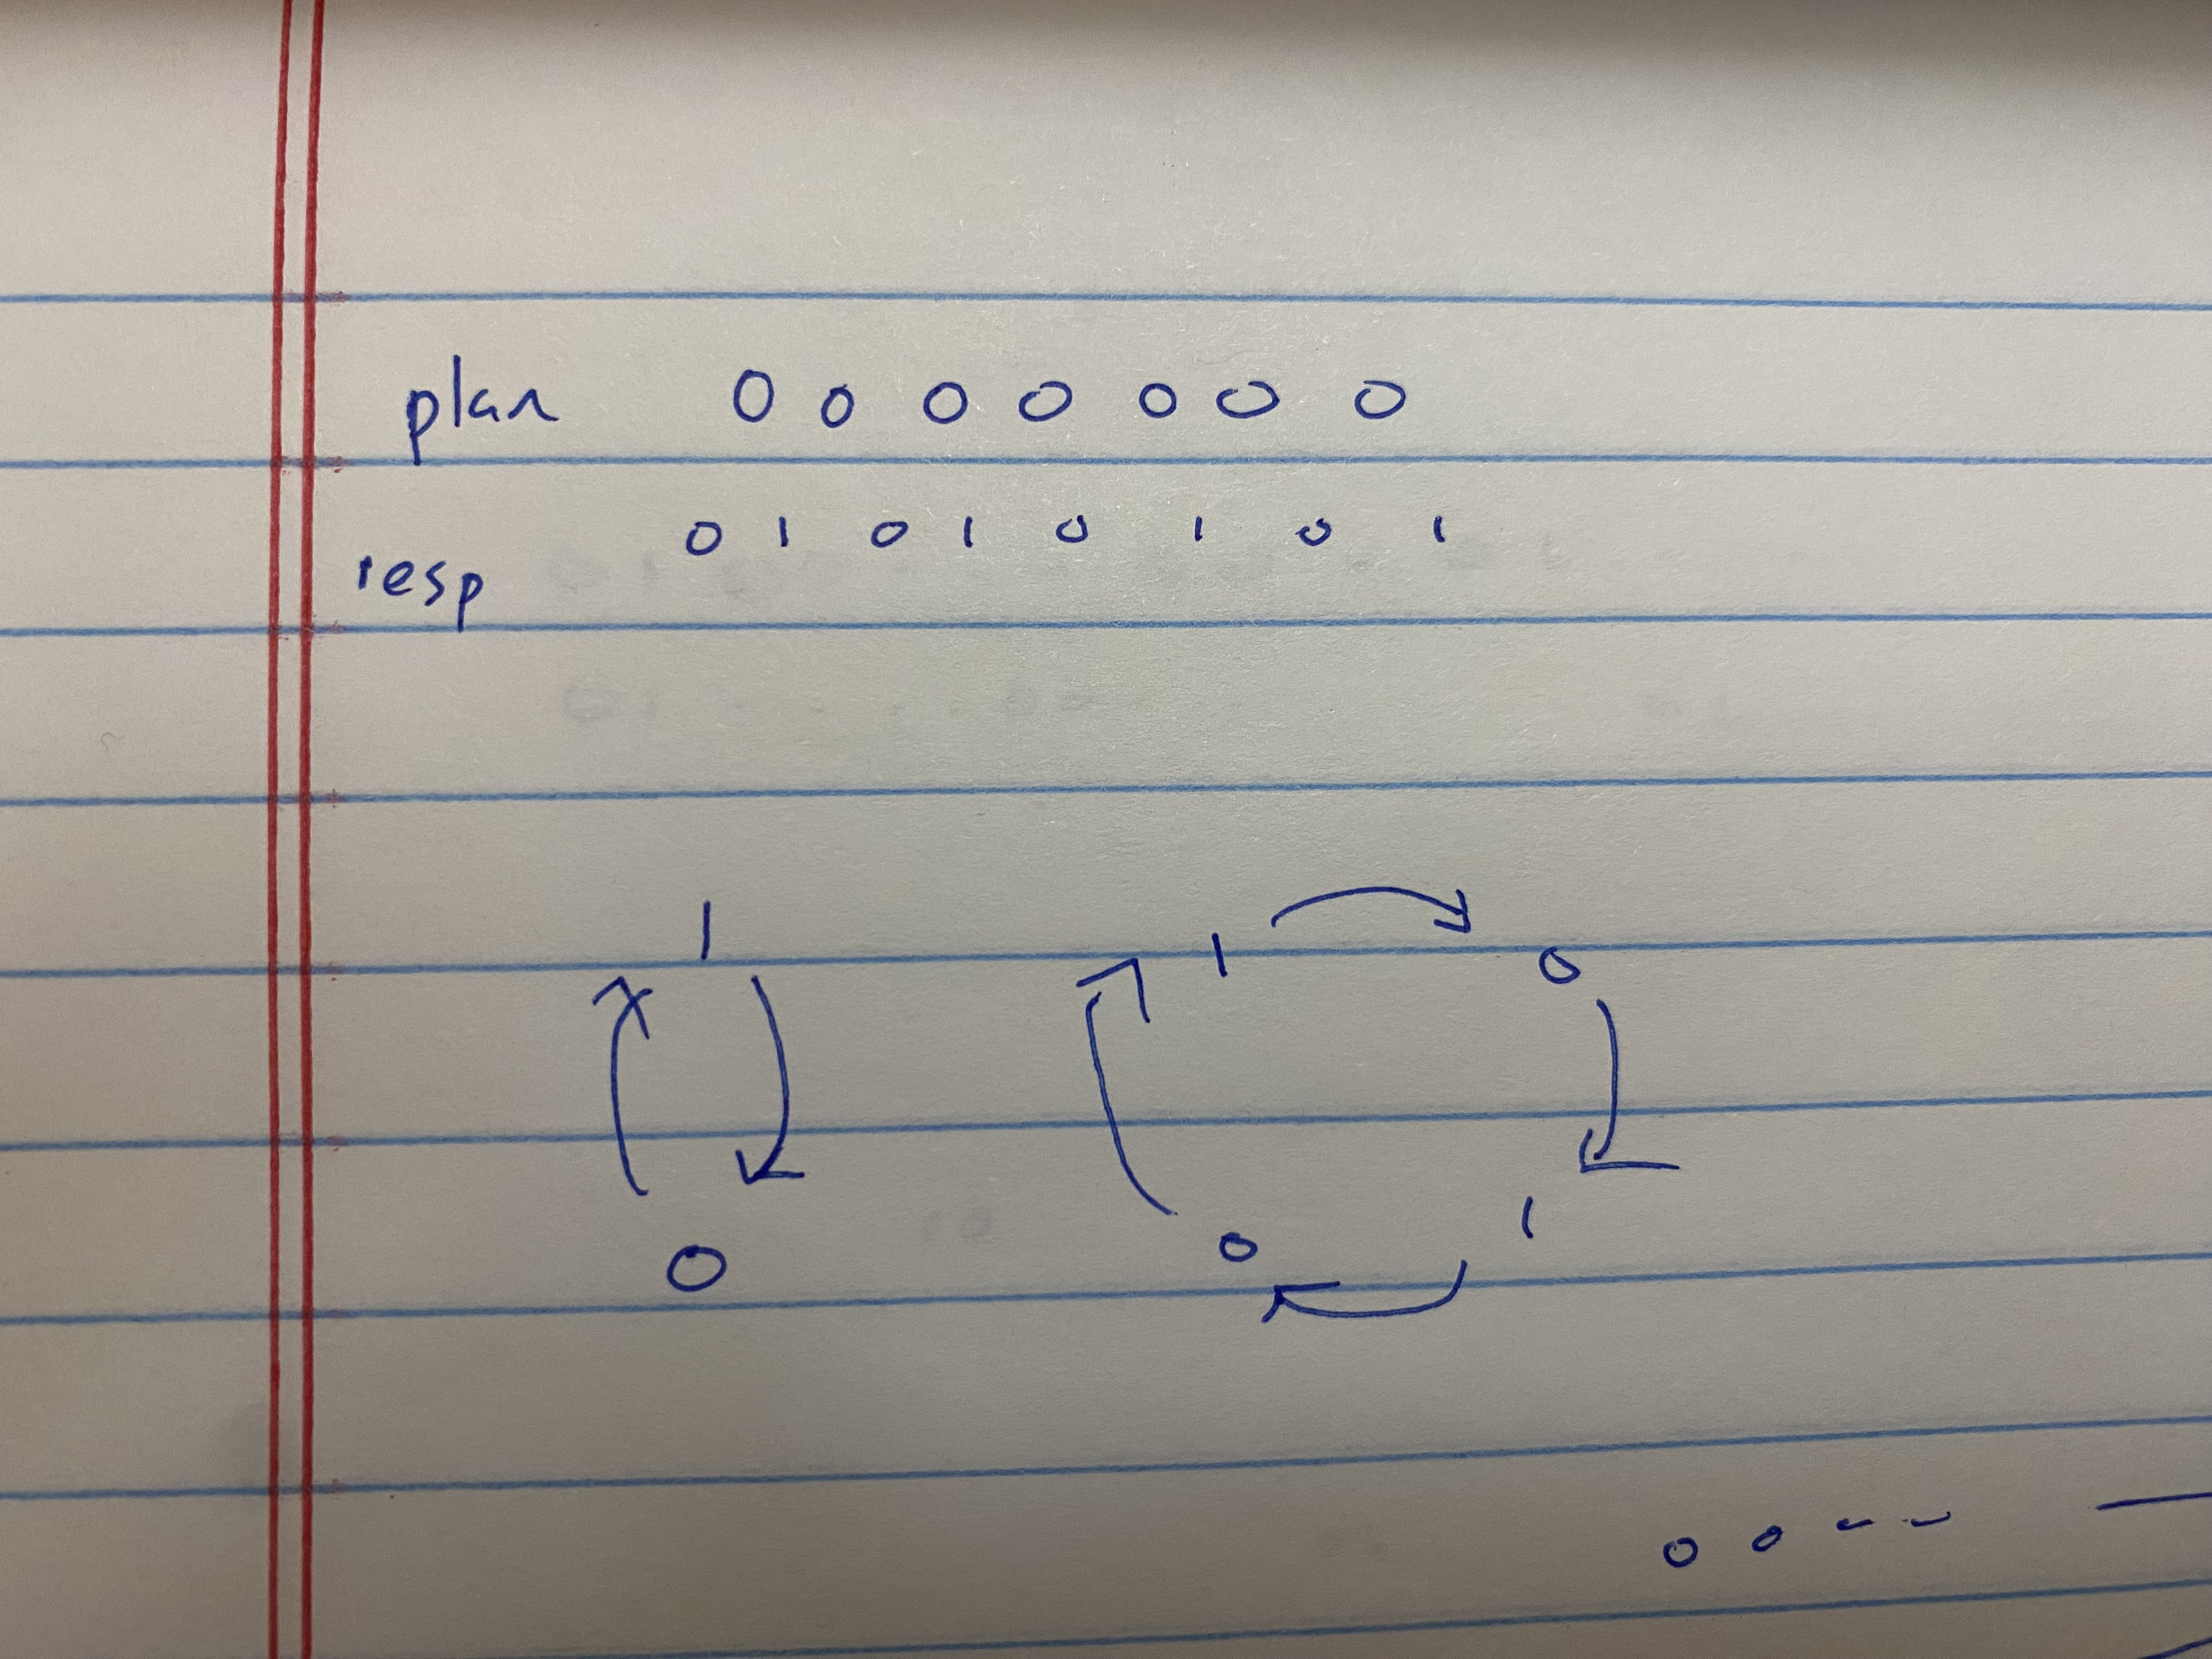 plan 0 0 0 0 0 0 0
resp 0 1 0 1 0 1 0 1
1 1 0
0 0 1
0 0